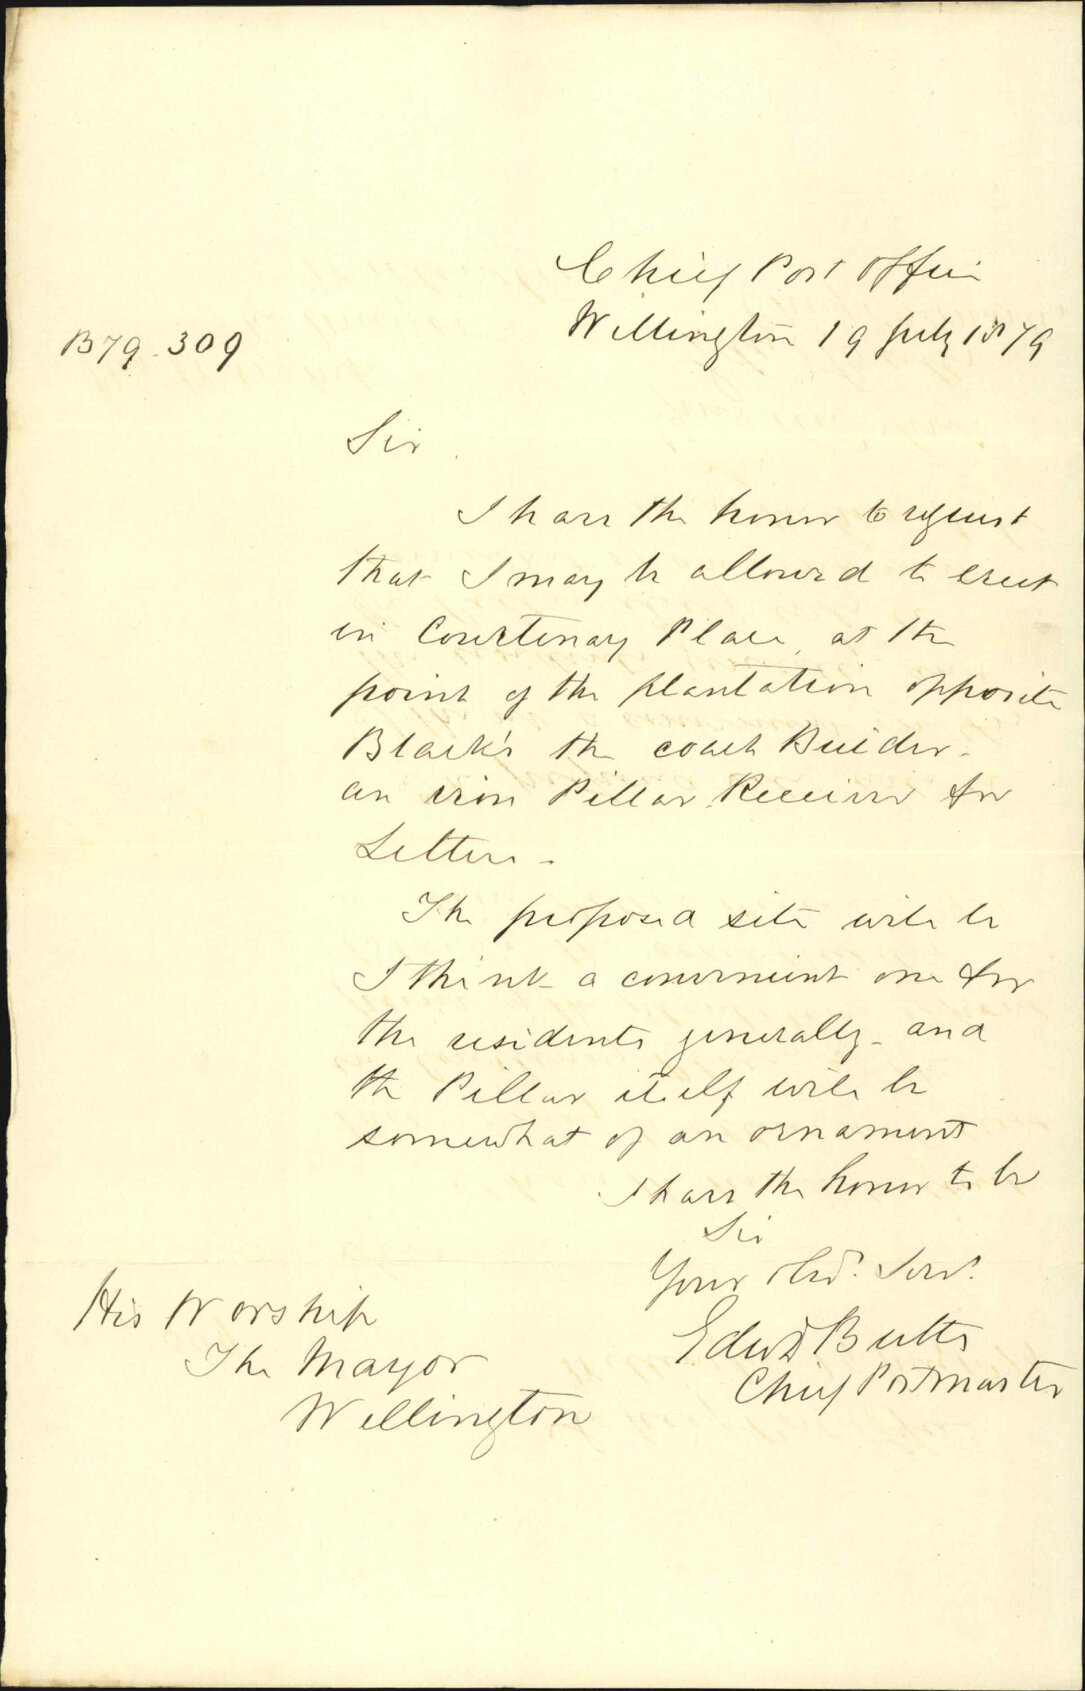 Chief Post Office
Wellington 19 July 1879
B79.309
Sir
I have the honor to request
that I may be allowed to erect
in Courtenay Place, at the
point of the plantation opposite
Black's the coach Builder -
an iron Pillar Receiver for
Letters -
The proposed site will be
I think a convenient one for
the residents generally - and
the Pillar itself will be
somewhat of an ornament
I have the honor to be
Sir
Your Obd. Serv.
Edwd Butts
Chief Postmaster
His Worship
The Mayor
Wellington